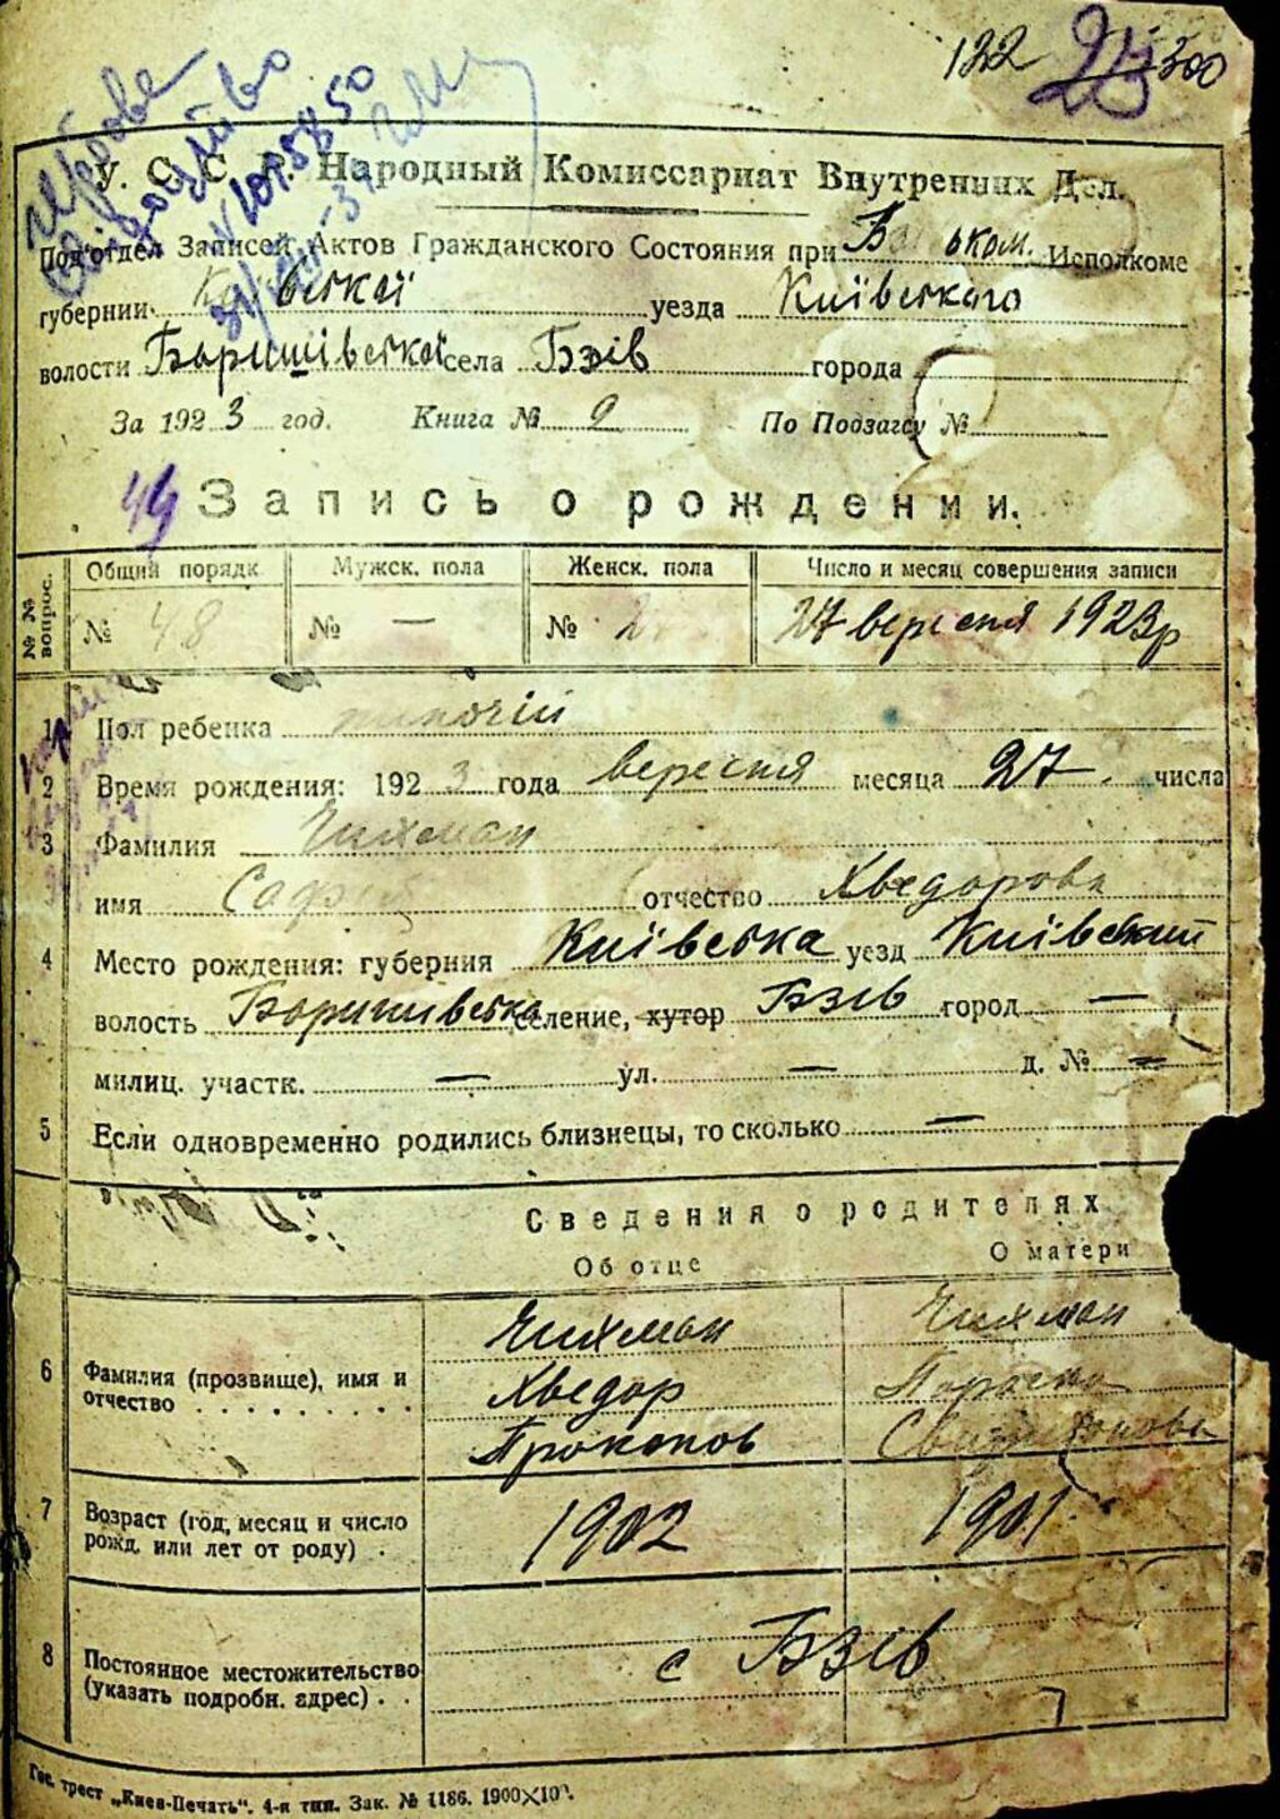 122 23 300
У. С. С. Р. Народный Комиссариат Внутренних Дел.
Под'отдел Записей Актов Гражданского Состояния при Исполкоме
губернии уезда Київського
волости Баришівської села Бзів города
За 1923 год. Книга № 2 По Подзагсу №
44 Запись о рождении.
№№ вопрос. Общий порядк. Мужск. пола Женск. пола Число и месяц совершения записи
№ 48 № — № 27 вересня 1923 р
1 Пол ребенка жіночій
2 Время рождения: 1923 года вересня месяца 27. числа
3 Фамилия Чихман
имя отчество Хведорова
4 Место рождения: губерния Київська уезд Київский
волость Баришівська селение, хутор Бзів город —
милиц. участк. — ул. — д. № —
5 Если одновременно родились близнецы, то сколько —
Сведения о родителях
Об отце О матери
Чихман Чихман
6 Фамилия (прозвище), имя и Хведор Параска
отчество Прокопов
7 Возраст (год, месяц и число 1902 1901
рожд. или лет от роду)
8 Постоянное местожительство с Бзів
(указать подробн. адрес)
Гос. трест „Киев-Печать“. 4-я тип. Зак. № 1186. 1900×10